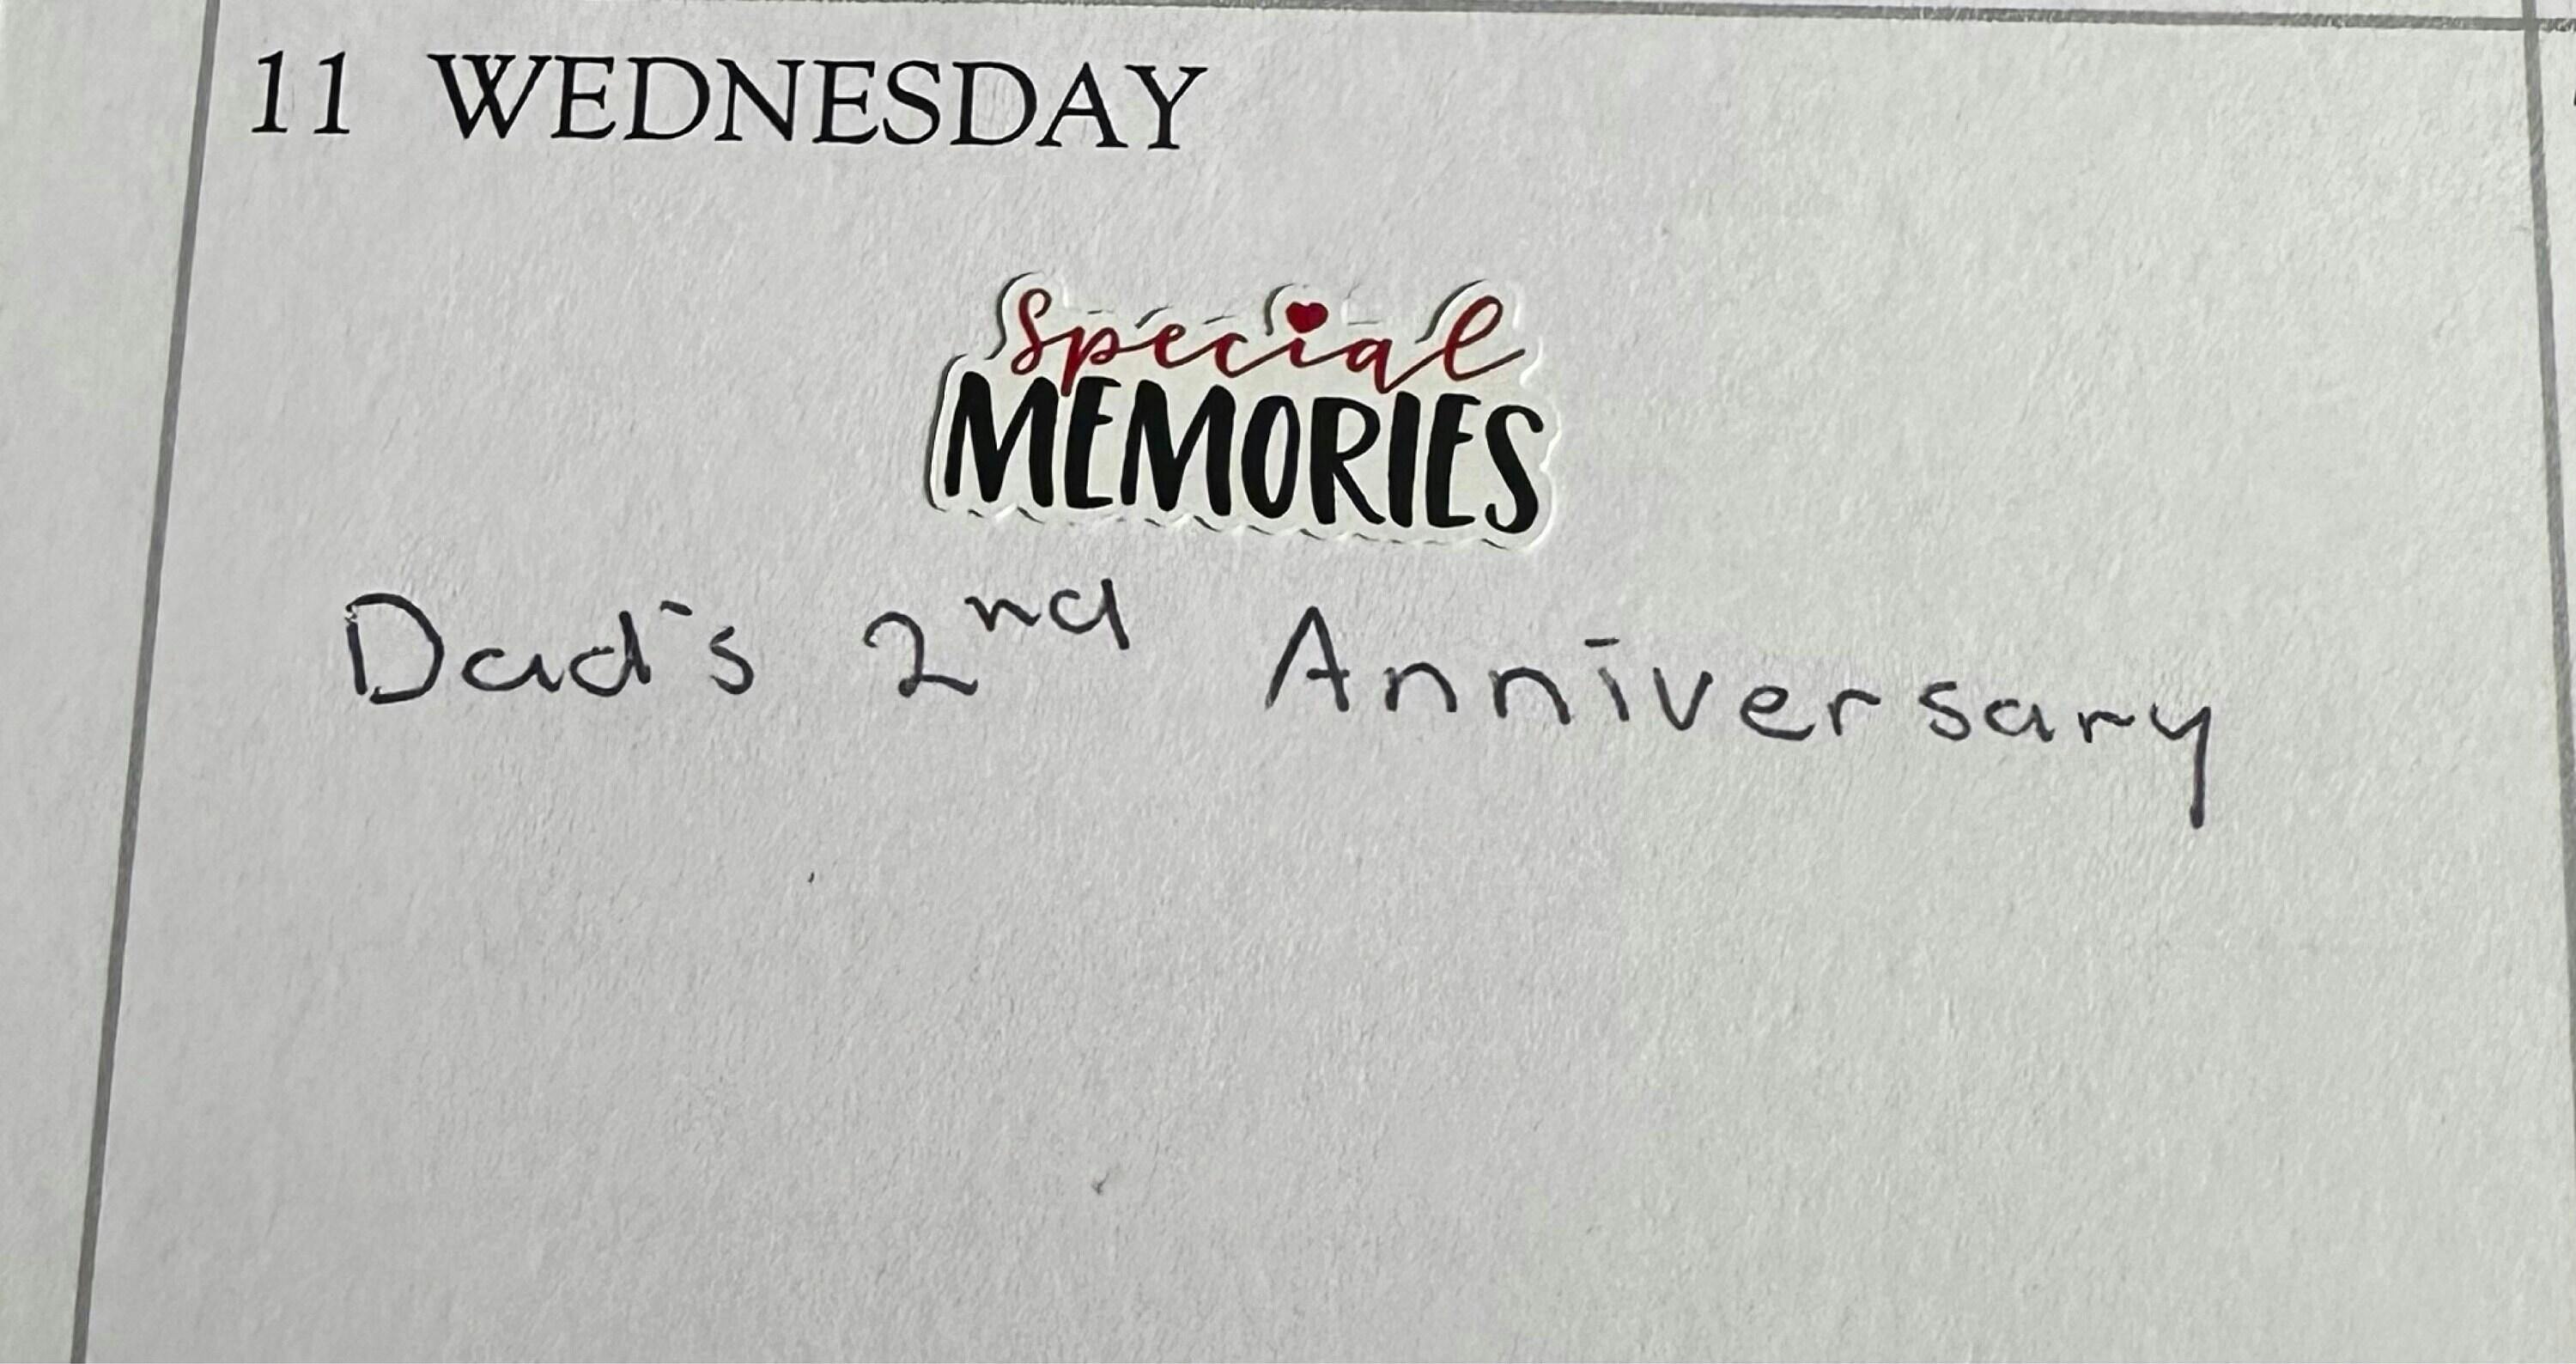 11 WEDNESDAY
Special
MEMORIES
Dad's 2nd Anniversary